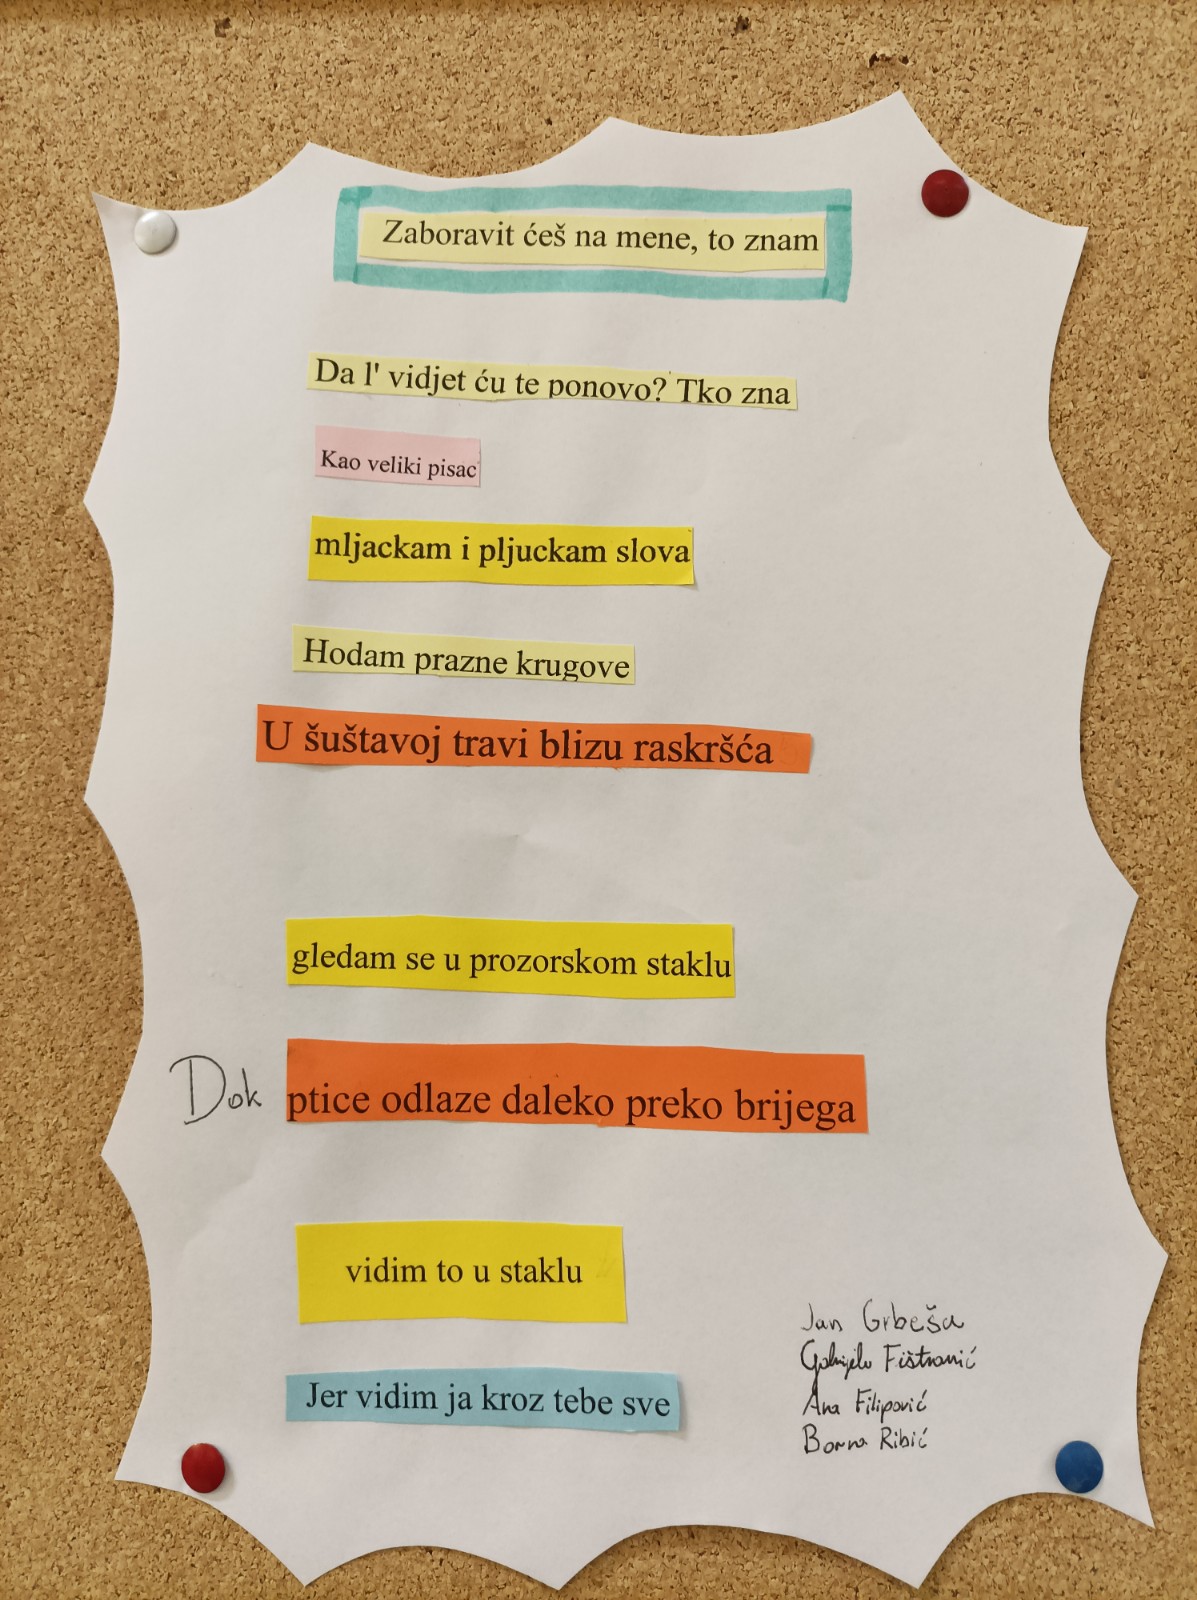 Zaboravit ćeš na mene, to znam
Da l' vidjet ću te ponovo? Tko zna
Kao veliki pisac
mljackam i pljuckam slova
Hodam prazne krugove
U šuštavoj travi blizu raskršća
gledam se u prozorskom staklu
Dok ptice odlaze daleko preko brijega
vidim to u staklu
Jer vidim ja kroz tebe sve
Jan Grbeša
Fištrović
Ana Filipović
Borna Ribić